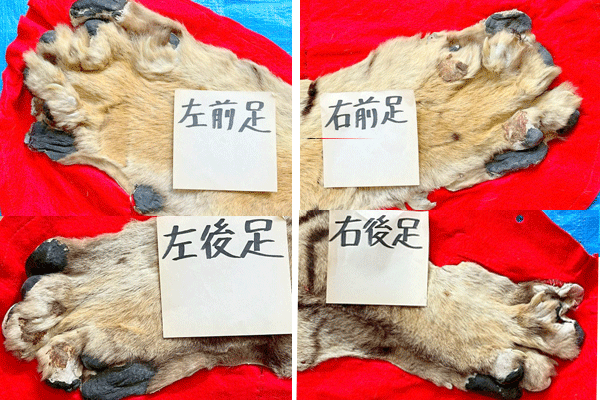 左前足
右前足
左後足
右後足